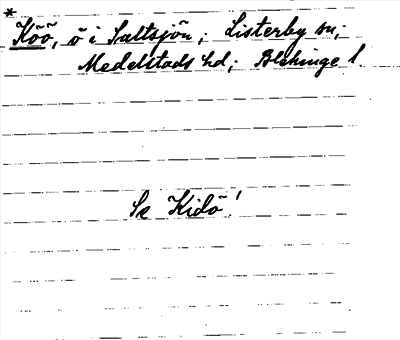 *
Köö, ö i Saltsjön; Listerby sn;
Medelstads hd; Blekinge l.
Se Kidö!